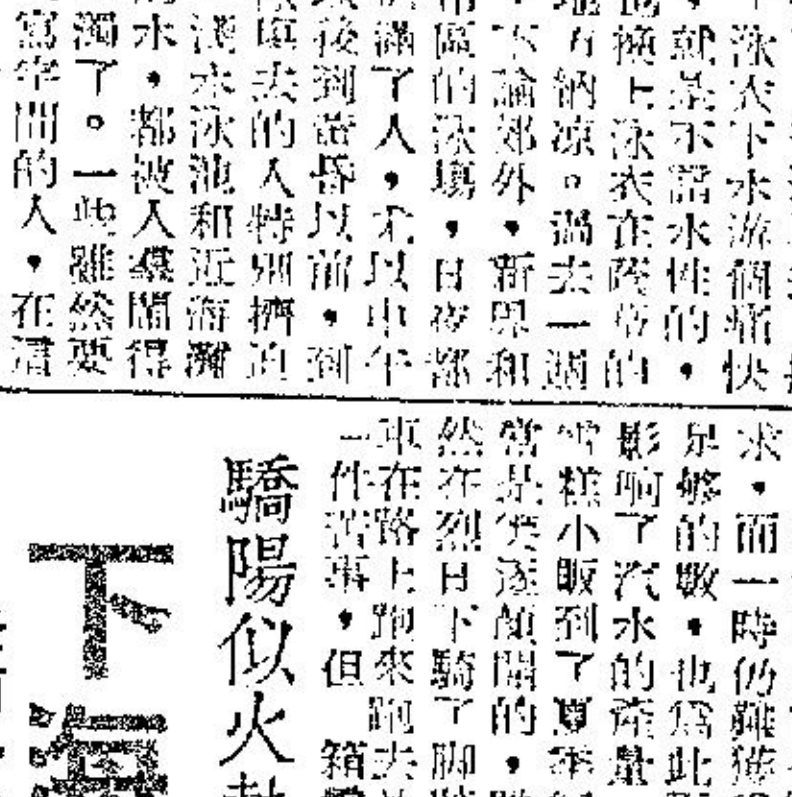 泳衣下水游個痛快
就是不諳水性的，
換上泳衣在
方納凉。過去一週
下論郊外，新界和
區的泳塲，日夜都
滿了人，尤以中午
後到黃昏以前，到
車去的人特別擠迫
淺水泳池和近海灘
水，都被人羣鬧得
濁了。一些雖然要
寫字間的人，在這
求，而一時仍難獲
足够的數，也爲此
影响了汽水的產量
雪糕小販到了夏季
當是笑逐顔開的，
然在烈日下騎了脚
車在路上跑來跑去
一件苦事，但 箱
驕陽似火
下海